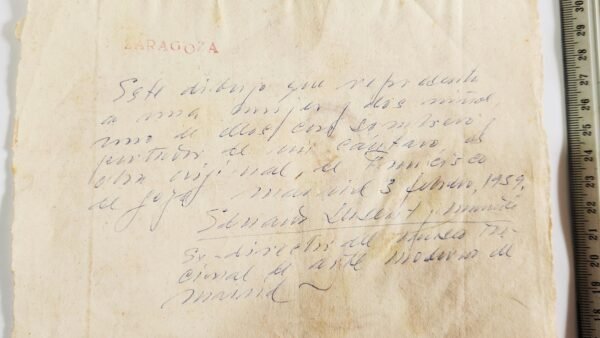 ZARAGOZA
Este dibujo que representa
a una mujer y dos niños,
uno de ellos con sombrero y
portador de un cántaro es
obra original, de Francisco
de Goya. Madrid 3 febrero, 1959,
Eduardo Llosent y Marañón
Ex-director del Museo Na-
cional de arte moderno de
Madrid
18 19 20 21 22 23 24 25 26 27 28 29 30